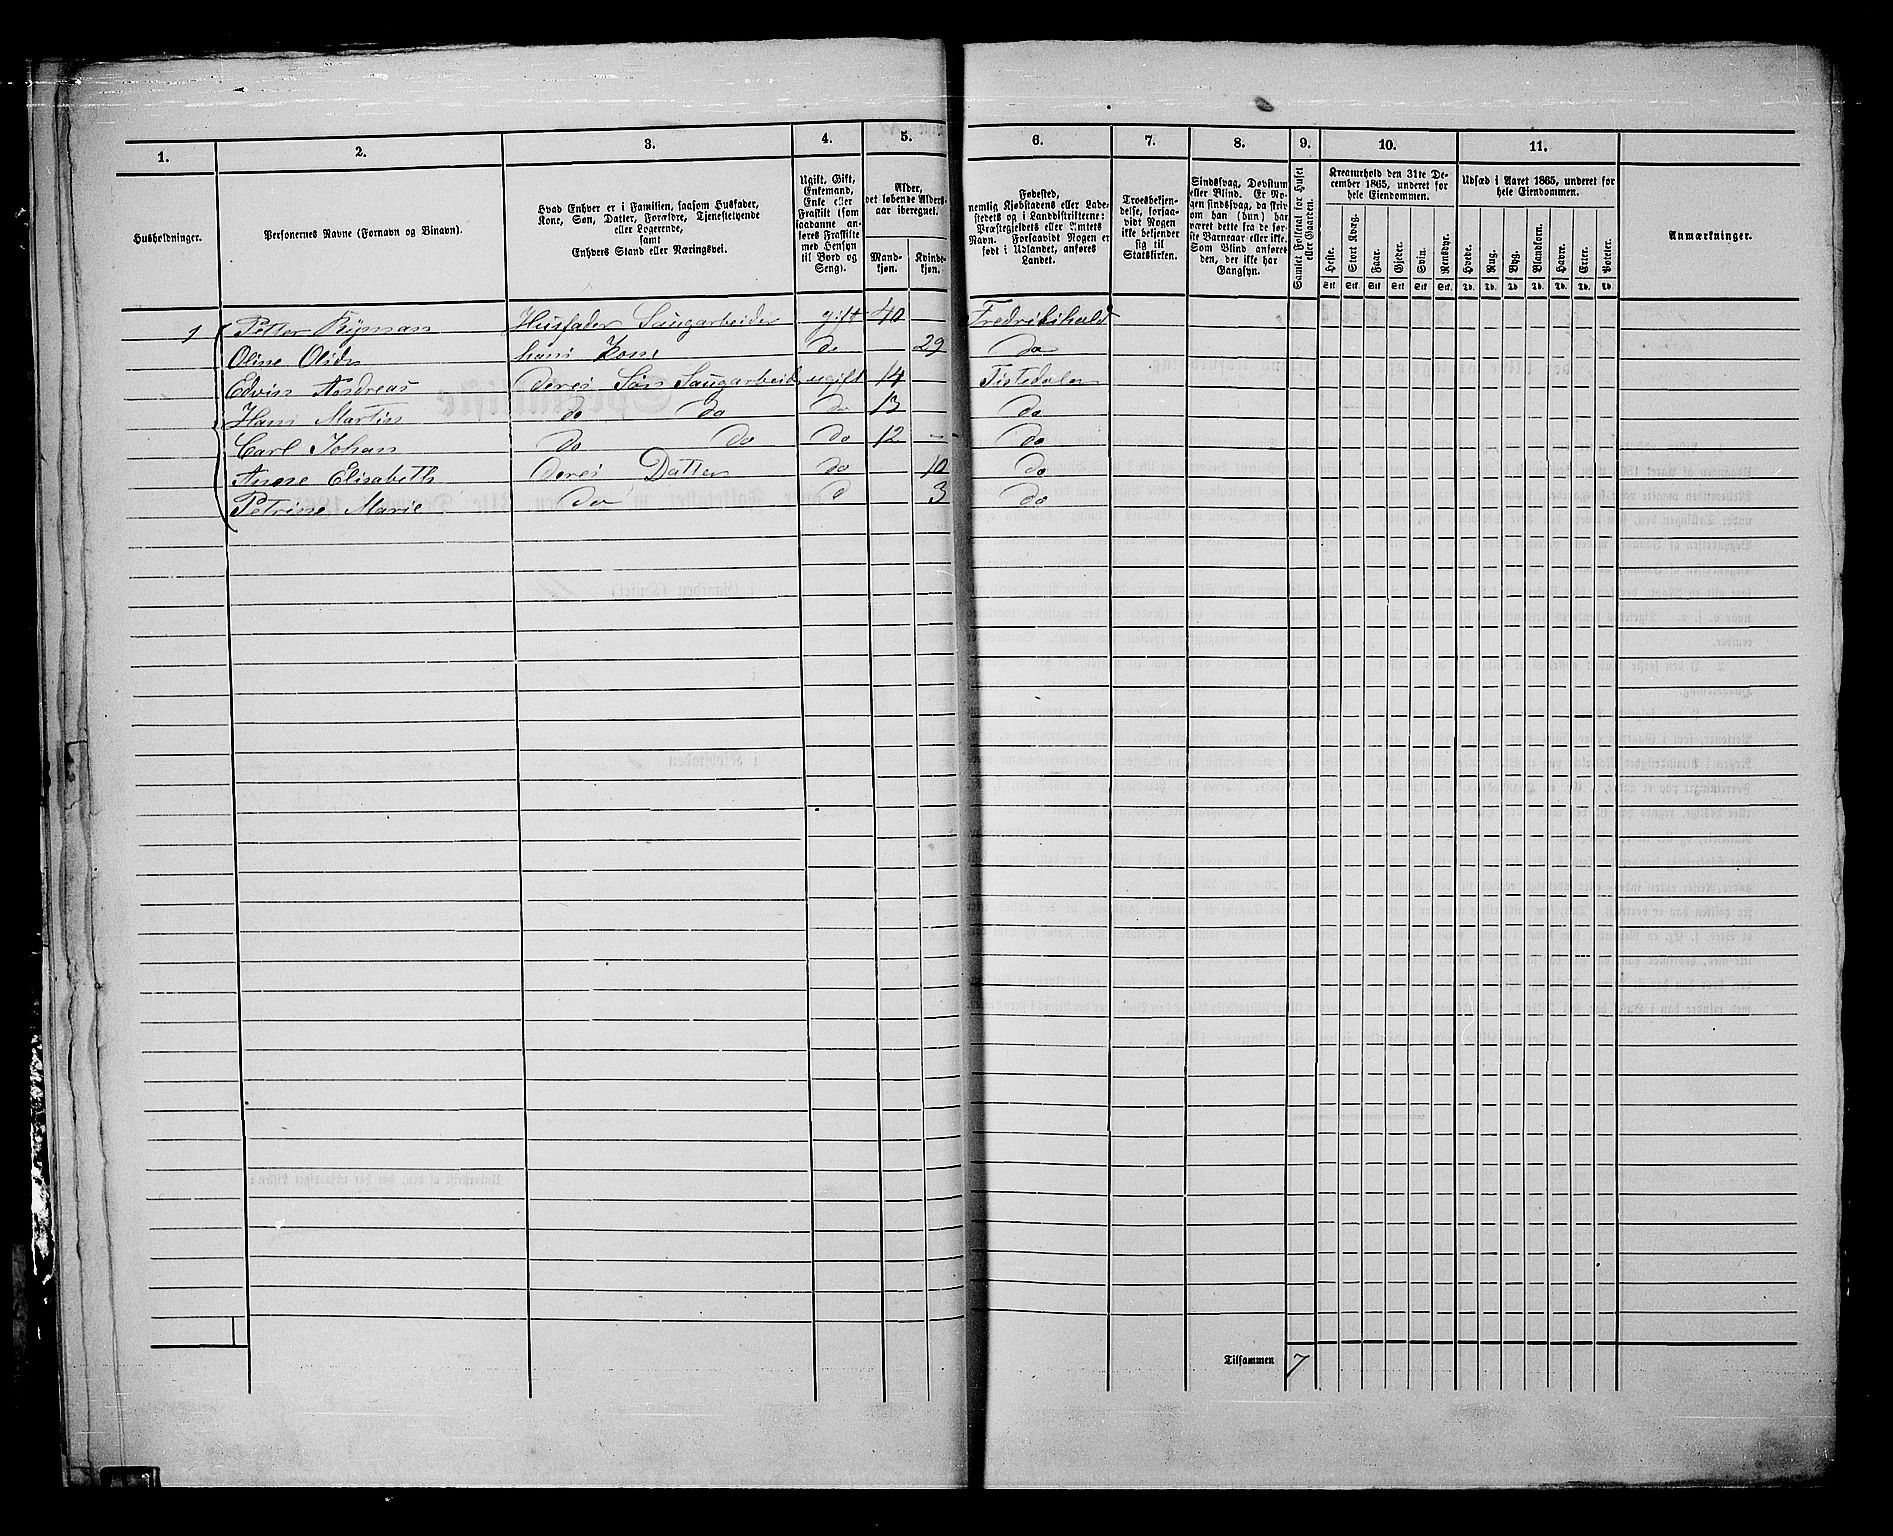 1. 2. 3. 4. 5. 6. 7. 8. 9. 10. 11.
Husholdninger.
Personernes Navne (Fornavn og Binavn).
Hvad Enhver er i Familien, saasom Husfader,
Kone, Søn, Datter, Forældre, Tjenestetyende
eller Logerende,
samt
Enhvers Stand eller Næringsvei.
Ugift, Gift,
Enkemand,
Enke eller
Fraskilt (som
saadanne an-
føres Fraskilte
med Hensyn
til Bord og
Seng).
Alder,
det løbende Alders-
aar iberegnet.
Mand-
kjøn.
Kvinde-
kjøn.
Fødested,
nemlig Kjøbstadens eller Lade-
stedets og i Landdistrikterne:
Præstegjeldets eller Amtets
Navn. Forsaavidt Nogen er
født i Udlandet, anføres
Landet.
Troesbekjen-
delse, forsaa-
vidt Nogen
ikke bekjender
sig til
Statskirken.
Sindssvag, Døvstum
eller Blind. Er No-
gen sindssvag, da skriv
om han (hun) har
været dette fra de før-
ste Barneaar eller ikke.
Som Blind anføres
den, der ikke har
Gangsyn.
Samlet Folketal for Huset
eller Gaarden.
Kreaturhold den 31te De-
cember 1865, underet for
hele Eiendommen.
Heste. Stort Kvæg. Faar. Gjeder. Svin. Rensdyr.
Stk. Stk. Stk. Stk. Stk. Stk.
Udsæd i Aaret 1865, underet for
hele Eiendommen.
Hvede. Rug. Byg. Blandkorn. Havre. Erter. Poteter.
Td. Td. Td. Td. Td. Td. Td.
Anmærkninger.
1 Petter Husfader Saugarbeider gift 40 Fredrikshald
Oline hans Kone do 29 do
Edvin Andreas deres Søn Saugarbeid ugift 14 Tistedalen
Hans Martin do do do 13 do
Carl Johan do do do 12 do
Anne Elisabeth deres Datter do 10 do
Petrine Marie do d 3 do
Tilsammen 7